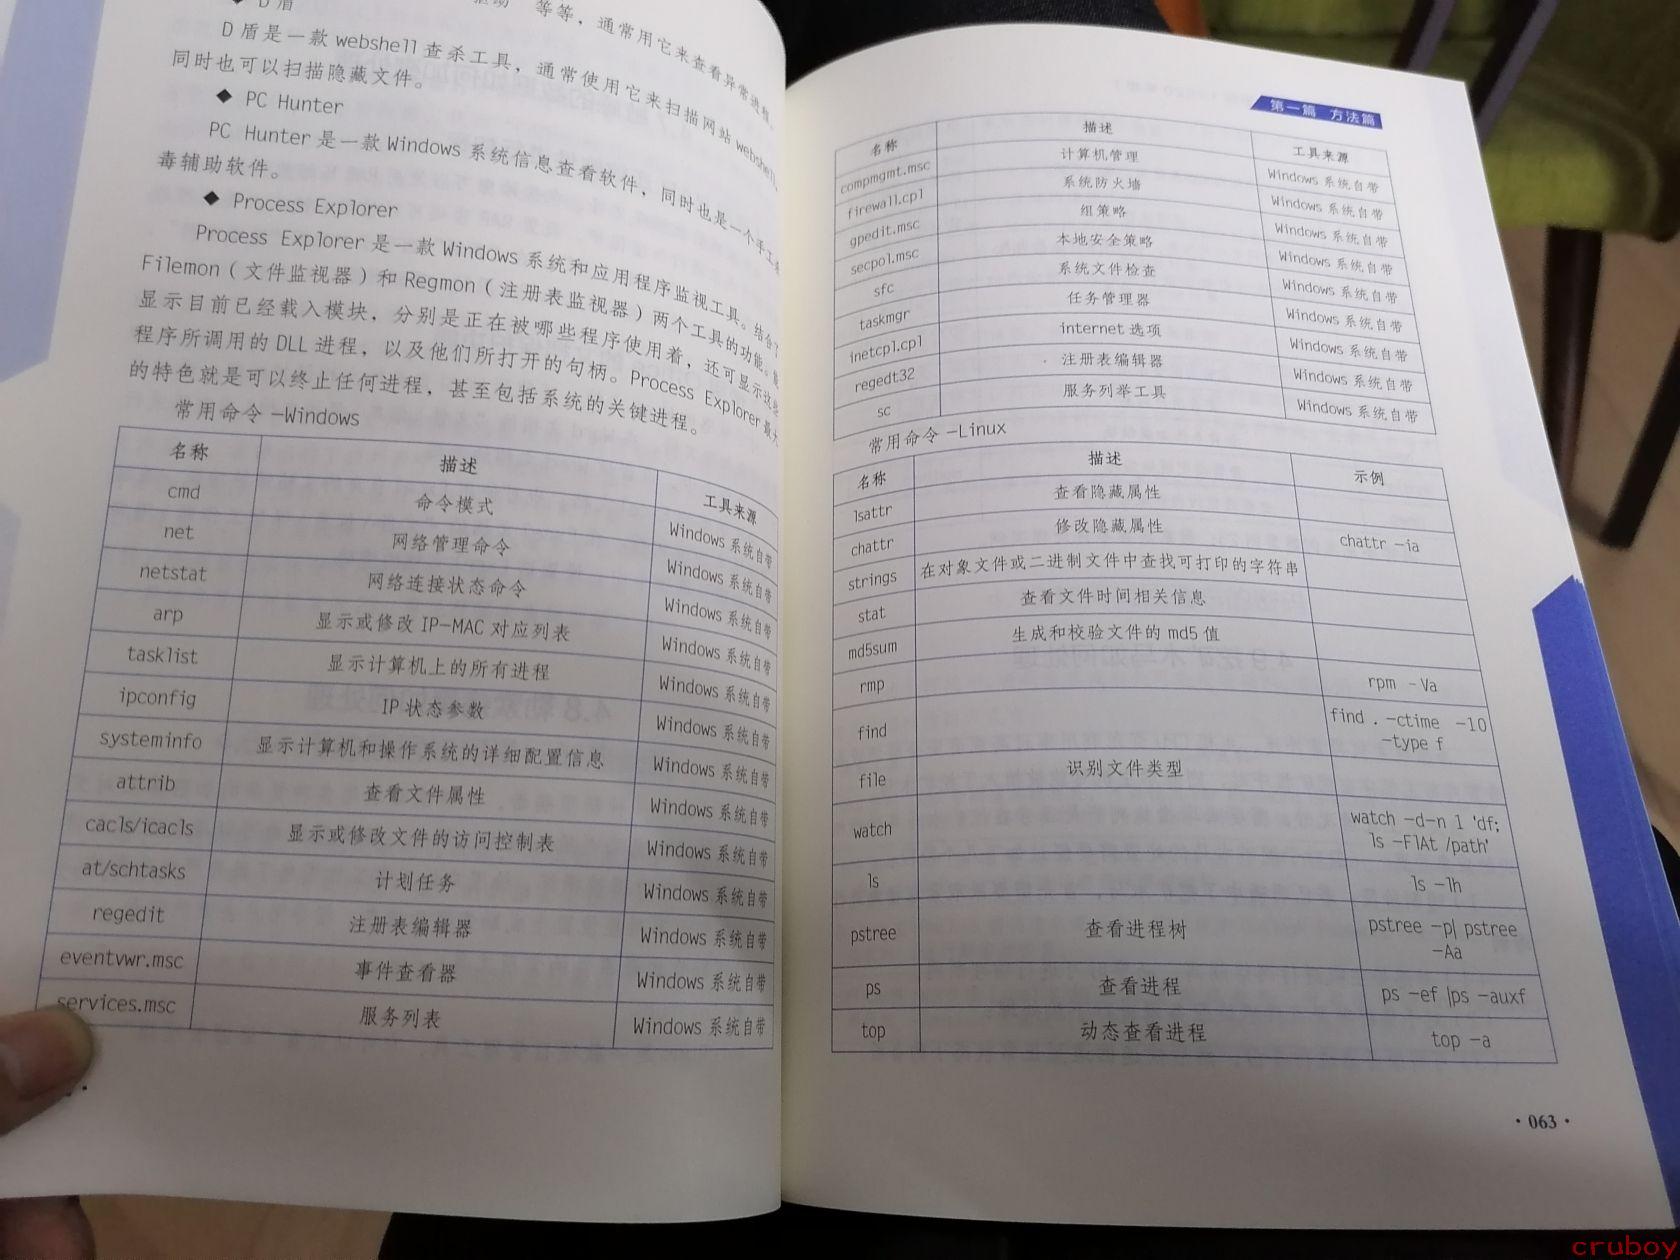 ◆ D盾
等等，通常用它来查看异常进程。
D盾是一款webshell查杀工具，通常使用它来扫描网站webshell，
同时也可以扫描隐藏文件。
◆ PC Hunter
PC Hunter是一款Windows系统信息查看软件，同时也是一个手工
毒辅助软件。
◆ Process Explorer
Process Explorer是一款Windows系统和应用程序监视工具。结合了
Filemon（文件监视器）和Regmon（注册表监视器）两个工具的功能。
显示目前已经载入模块，分别是正在被哪些程序使用着，还可显示这些
程序所调用的DLL进程，以及他们所打开的句柄。Process Explorer最大
的特色就是可以终止任何进程，甚至包括系统的关键进程。
常用命令-Windows
名称 描述 工具来源
cmd 命令模式 Windows系统自带
net 网络管理命令 Windows系统自带
netstat 网络连接状态命令 Windows系统自带
arp 显示或修改IP-MAC对应列表 Windows系统自带
tasklist 显示计算机上的所有进程 Windows系统自带
ipconfig IP状态参数 Windows系统自带
systeminfo 显示计算机和操作系统的详细配置信息 Windows系统自带
attrib 查看文件属性 Windows系统自带
cacls/icacls 显示或修改文件的访问控制表 Windows系统自带
at/schtasks 计划任务 Windows系统自带
regedit 注册表编辑器 Windows系统自带
eventvwr.msc 事件查看器 Windows系统自带
services.msc 服务列表 Windows系统自带
第一篇 方法篇
名称 描述 工具来源
compmgmt.msc 计算机管理 Windows系统自带
firewall.cpl 系统防火墙 Windows系统自带
gpedit.msc 组策略 Windows系统自带
secpol.msc 本地安全策略 Windows系统自带
sfc 系统文件检查 Windows系统自带
taskmgr 任务管理器 Windows系统自带
inetcpl.cpl internet选项 Windows系统自带
regedt32 注册表编辑器 Windows系统自带
sc 服务列举工具 Windows系统自带
常用命令-Linux
名称 描述 示例
lsattr 查看隐藏属性
chattr 修改隐藏属性 chattr -ia
strings 在对象文件或二进制文件中查找可打印的字符串
stat 查看文件时间相关信息
md5sum 生成和校验文件的md5值
rmp rpm -Va
find find . -ctime -10
-type f
file 识别文件类型
watch watch -d-n 1 'df;
ls -FlAt /path'
ls ls -lh
pstree 查看进程树 pstree -p| pstree
-Aa
ps 查看进程 ps -ef |ps -auxf
top 动态查看进程 top -a
·063·
cruboy